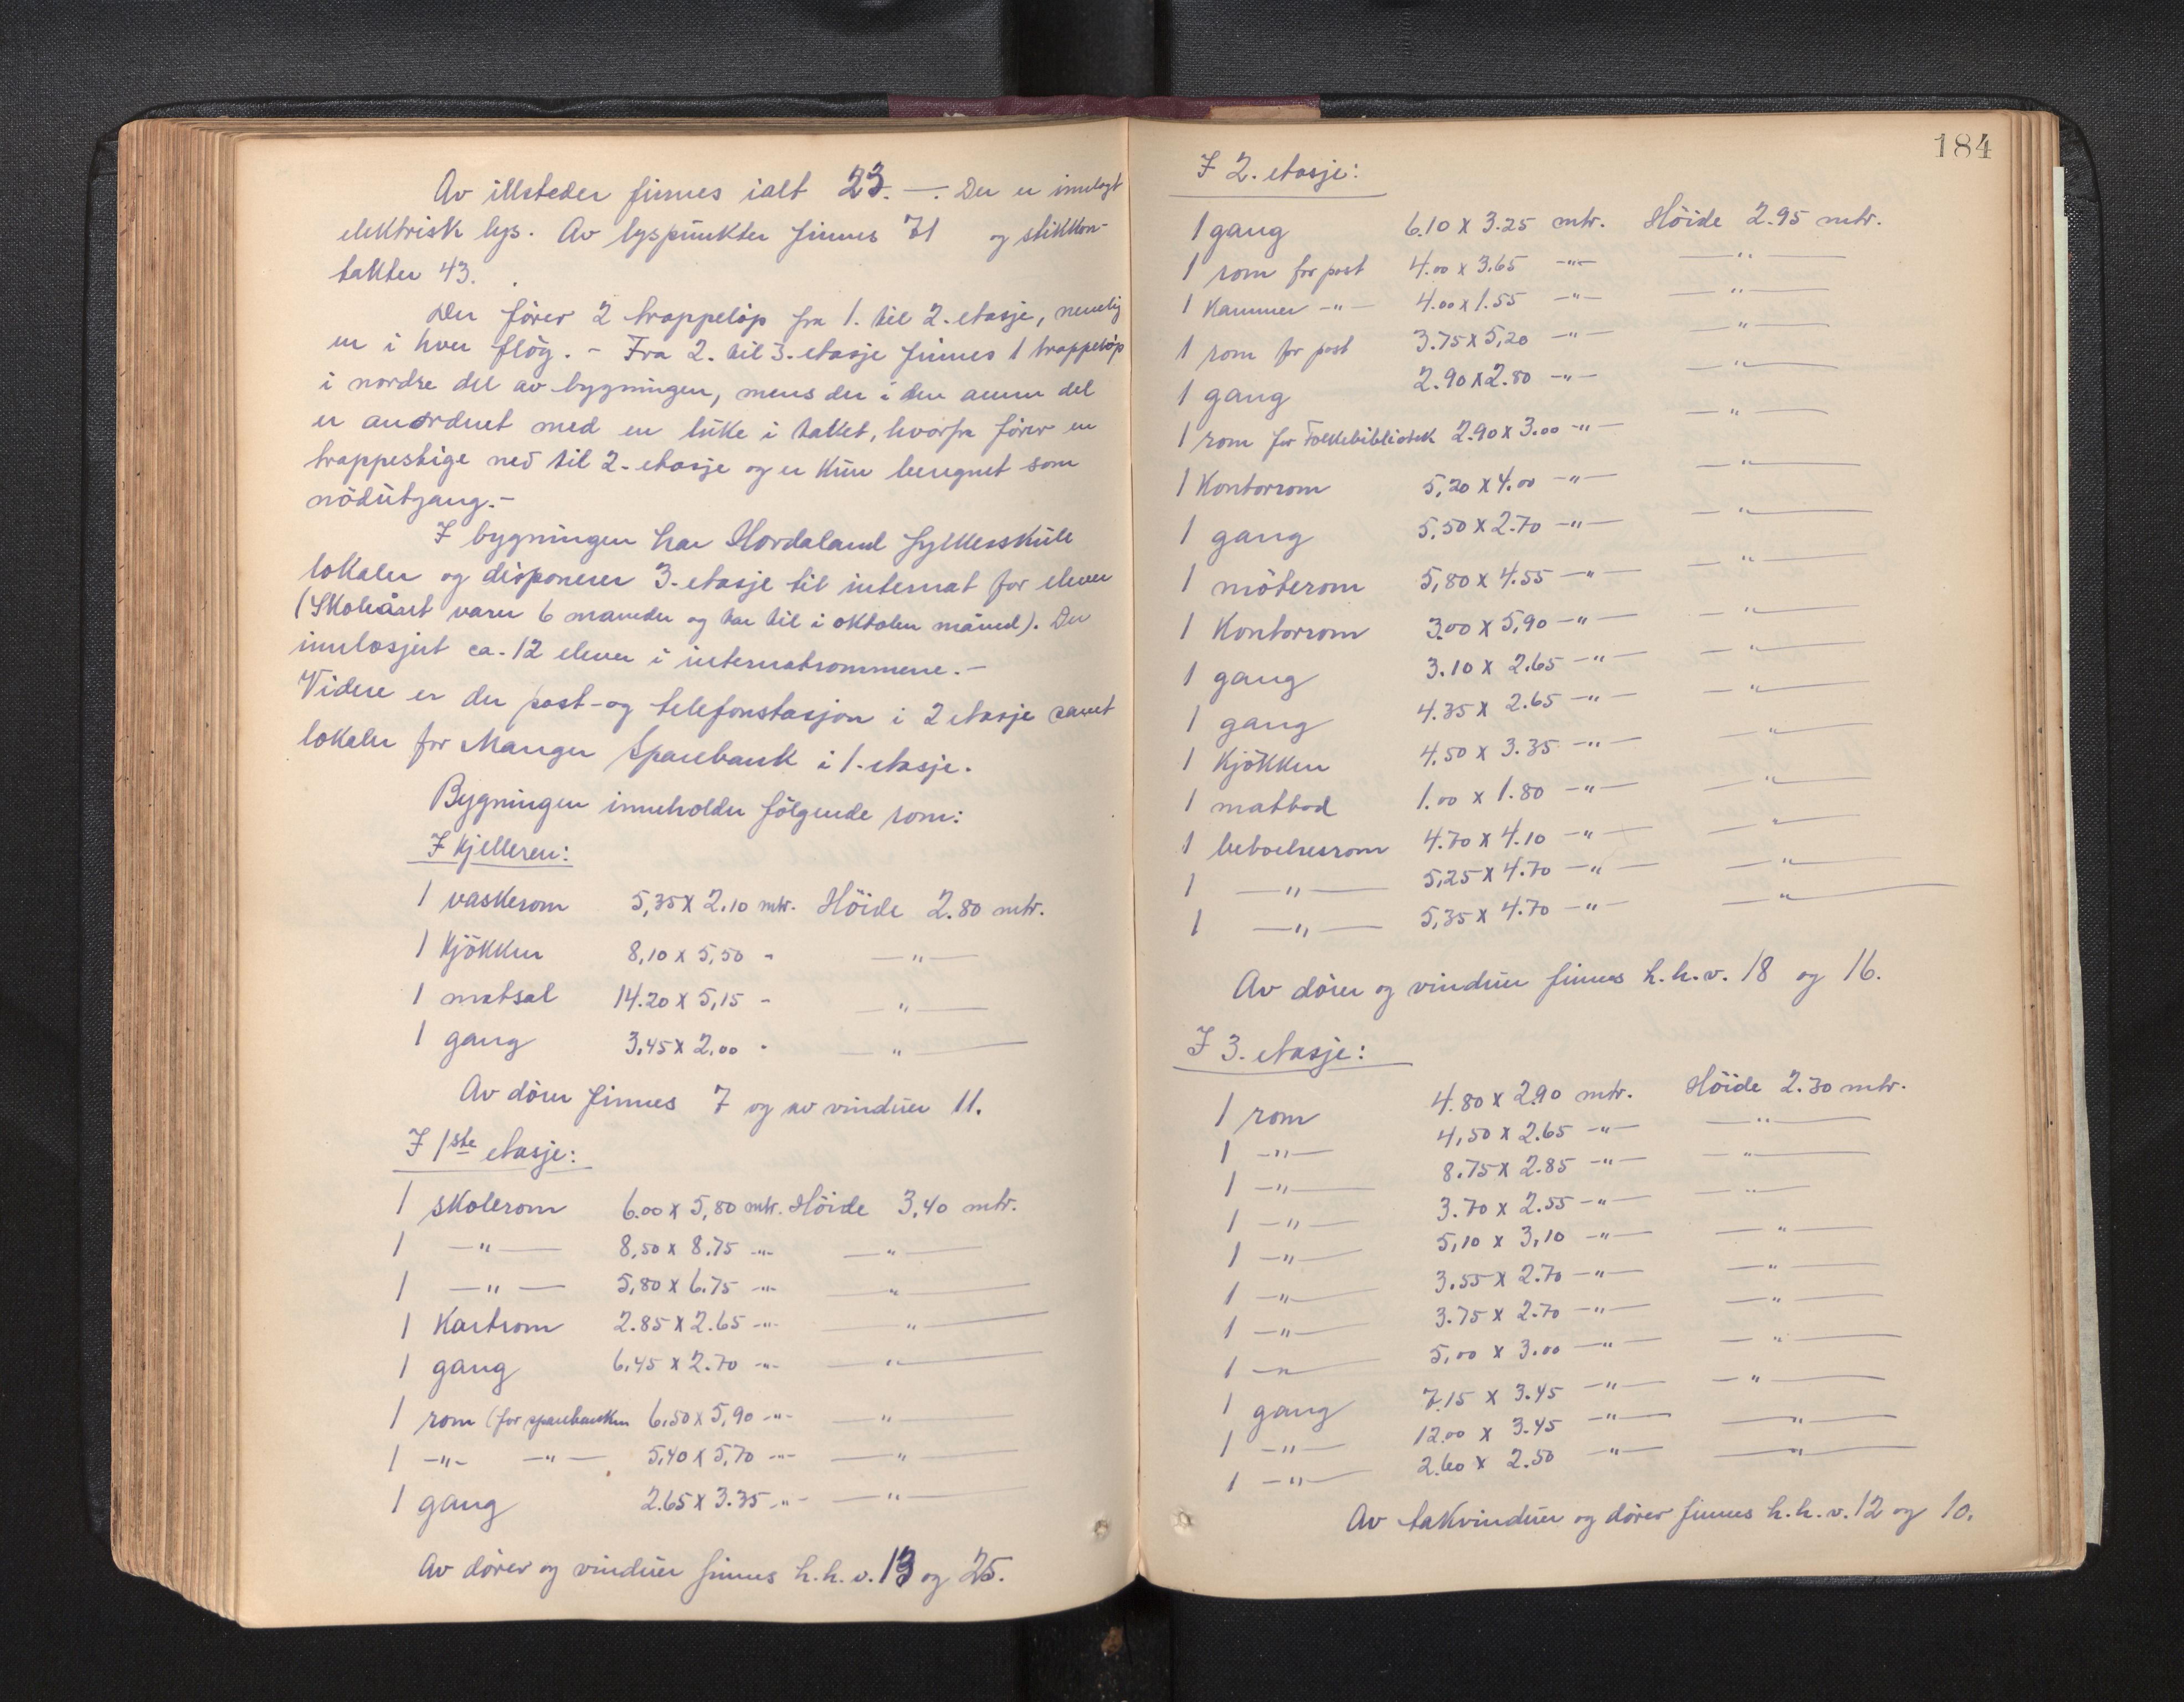 Av illsteder finnes ialt 23. —. Der er innlagt
elektrisk lys. Av lyspunkter finnes 71 og stikkon-
takter 43.
Der fører 2 trappeløp fra 1. til 2. etasje, nemlig
en i hver fløy. - Fra 2. til 3. etasje finnes 1 trappeløp
i nordre del av bygningen, mens der i den annen del
er anordnet med en luke i taket, hvorfra fører en
trappestige ned til 2. etasje og er kun beregnet som
nödutgang.-
I bygningen har Hordaland fylkesskule
lokaler og disponerer 3. etasje til internat for elever
(Skoleåret varer 6 maneder og tar til i oktober måned). Der
innlosjert ca. 12 elever i internatrommene.-
Videre er der post- og telefonstasjon i 2 etasje samt
lokaler for Manger Sparebank i 1. etasje.
Bygningen inneholder følgende rom:
I kjelleren:
1 vaskerom 5,35 x 2.10 mtr. Höide 2.80 mtr.
1 kjökken 8,10 x 5,50 - —"—
1 matsal 14.20 x 5,15 - —"—
1 gang 3,45 x 2,00 - —"—
Av dører finnes 7 og av vinduer 11.
I 1ste etasje:
1 skolerom 6.00 x 5,80 mtr. Höide 3,40 mtr.
1 —"— 8,50 x 8.75 -"- —"—
1 —"— 5,80 x 6.75 -"- —"—
1 Kartrom 2.85 x 2.65 -"- —"—
1 gang 6,45 x 2.70 -"- —"—
1 rom (for sparebanken 6,50 x 5,90 -"- —"—
1 -"- —"— 5,40 x 5,70 -"- —"—
1 gang 2.65 x 3.35 -"- —"—
Av dører og vinduer finnes h.h.v. 13 og 25.
184
I 2. etasje:
1 gang 6.10 x 3.25 mtr. Höide 2.95 mtr.
1 rom for post 4.00 x 3.65 —"— —"—
1 Kammer -"- 4.00 x 1.55 —"— —"—
1 rom for post 3.75 x 5,20 —"— —"—
1 gang 2.90 x 2.80 —"— —"—
1 rom for Folkebibliotek 2.90 x 3.00 —"— —"—
1 Kontorrom 5,20 x 4.00 —"— —"—
1 gang 5,50 x 2.70 —"— —"—
1 möterom 5,80 x 4.55 —"— —"—
1 Kontorrom 3.00 x 5,90 —"— —"—
1 gang 3.10 x 2.65 —"— —"—
1 gang 4.35 x 2.65 —"— —"—
1 Kjökken 4.50 x 3.35 —"— —"—
1 matbod 1.00 x 1.80 —"— —"—
1 beboelsesrom 4.70 x 4.10 —"— —"—
1 —"— 5,25 x 4.70 —"— —"—
1 —"— 5,35 x 4.70 —"— —"—
Av dører og vinduer finnes h.h.v. 18 og 16.
I 3. etasje:
1 rom 4.80 x 2.90 mtr. Höide 2.30 mtr.
1 —"— 4,50 x 2.65 —"— —"—
1 —"— 8.75 x 2.85 —"— —"—
1 —"— 3.70 x 2.55 —"— —"—
1 —"— 5,10 x 3,10 —"— —"—
1 —"— 3.55 x 2.70 —"— —"—
1 —"— 3.75 x 2.70 —"— —"—
1 —"— 5,00 x 3.00 —"— —"—
1 gang 7.15 x 3.45 —"— —"—
1 —"— 12.00 x 3.45 —"— —"—
1 —"— 2.60 x 2.50 —"— —"—
Av takvinduer og dører finnes h.h.v. 12 og 10.